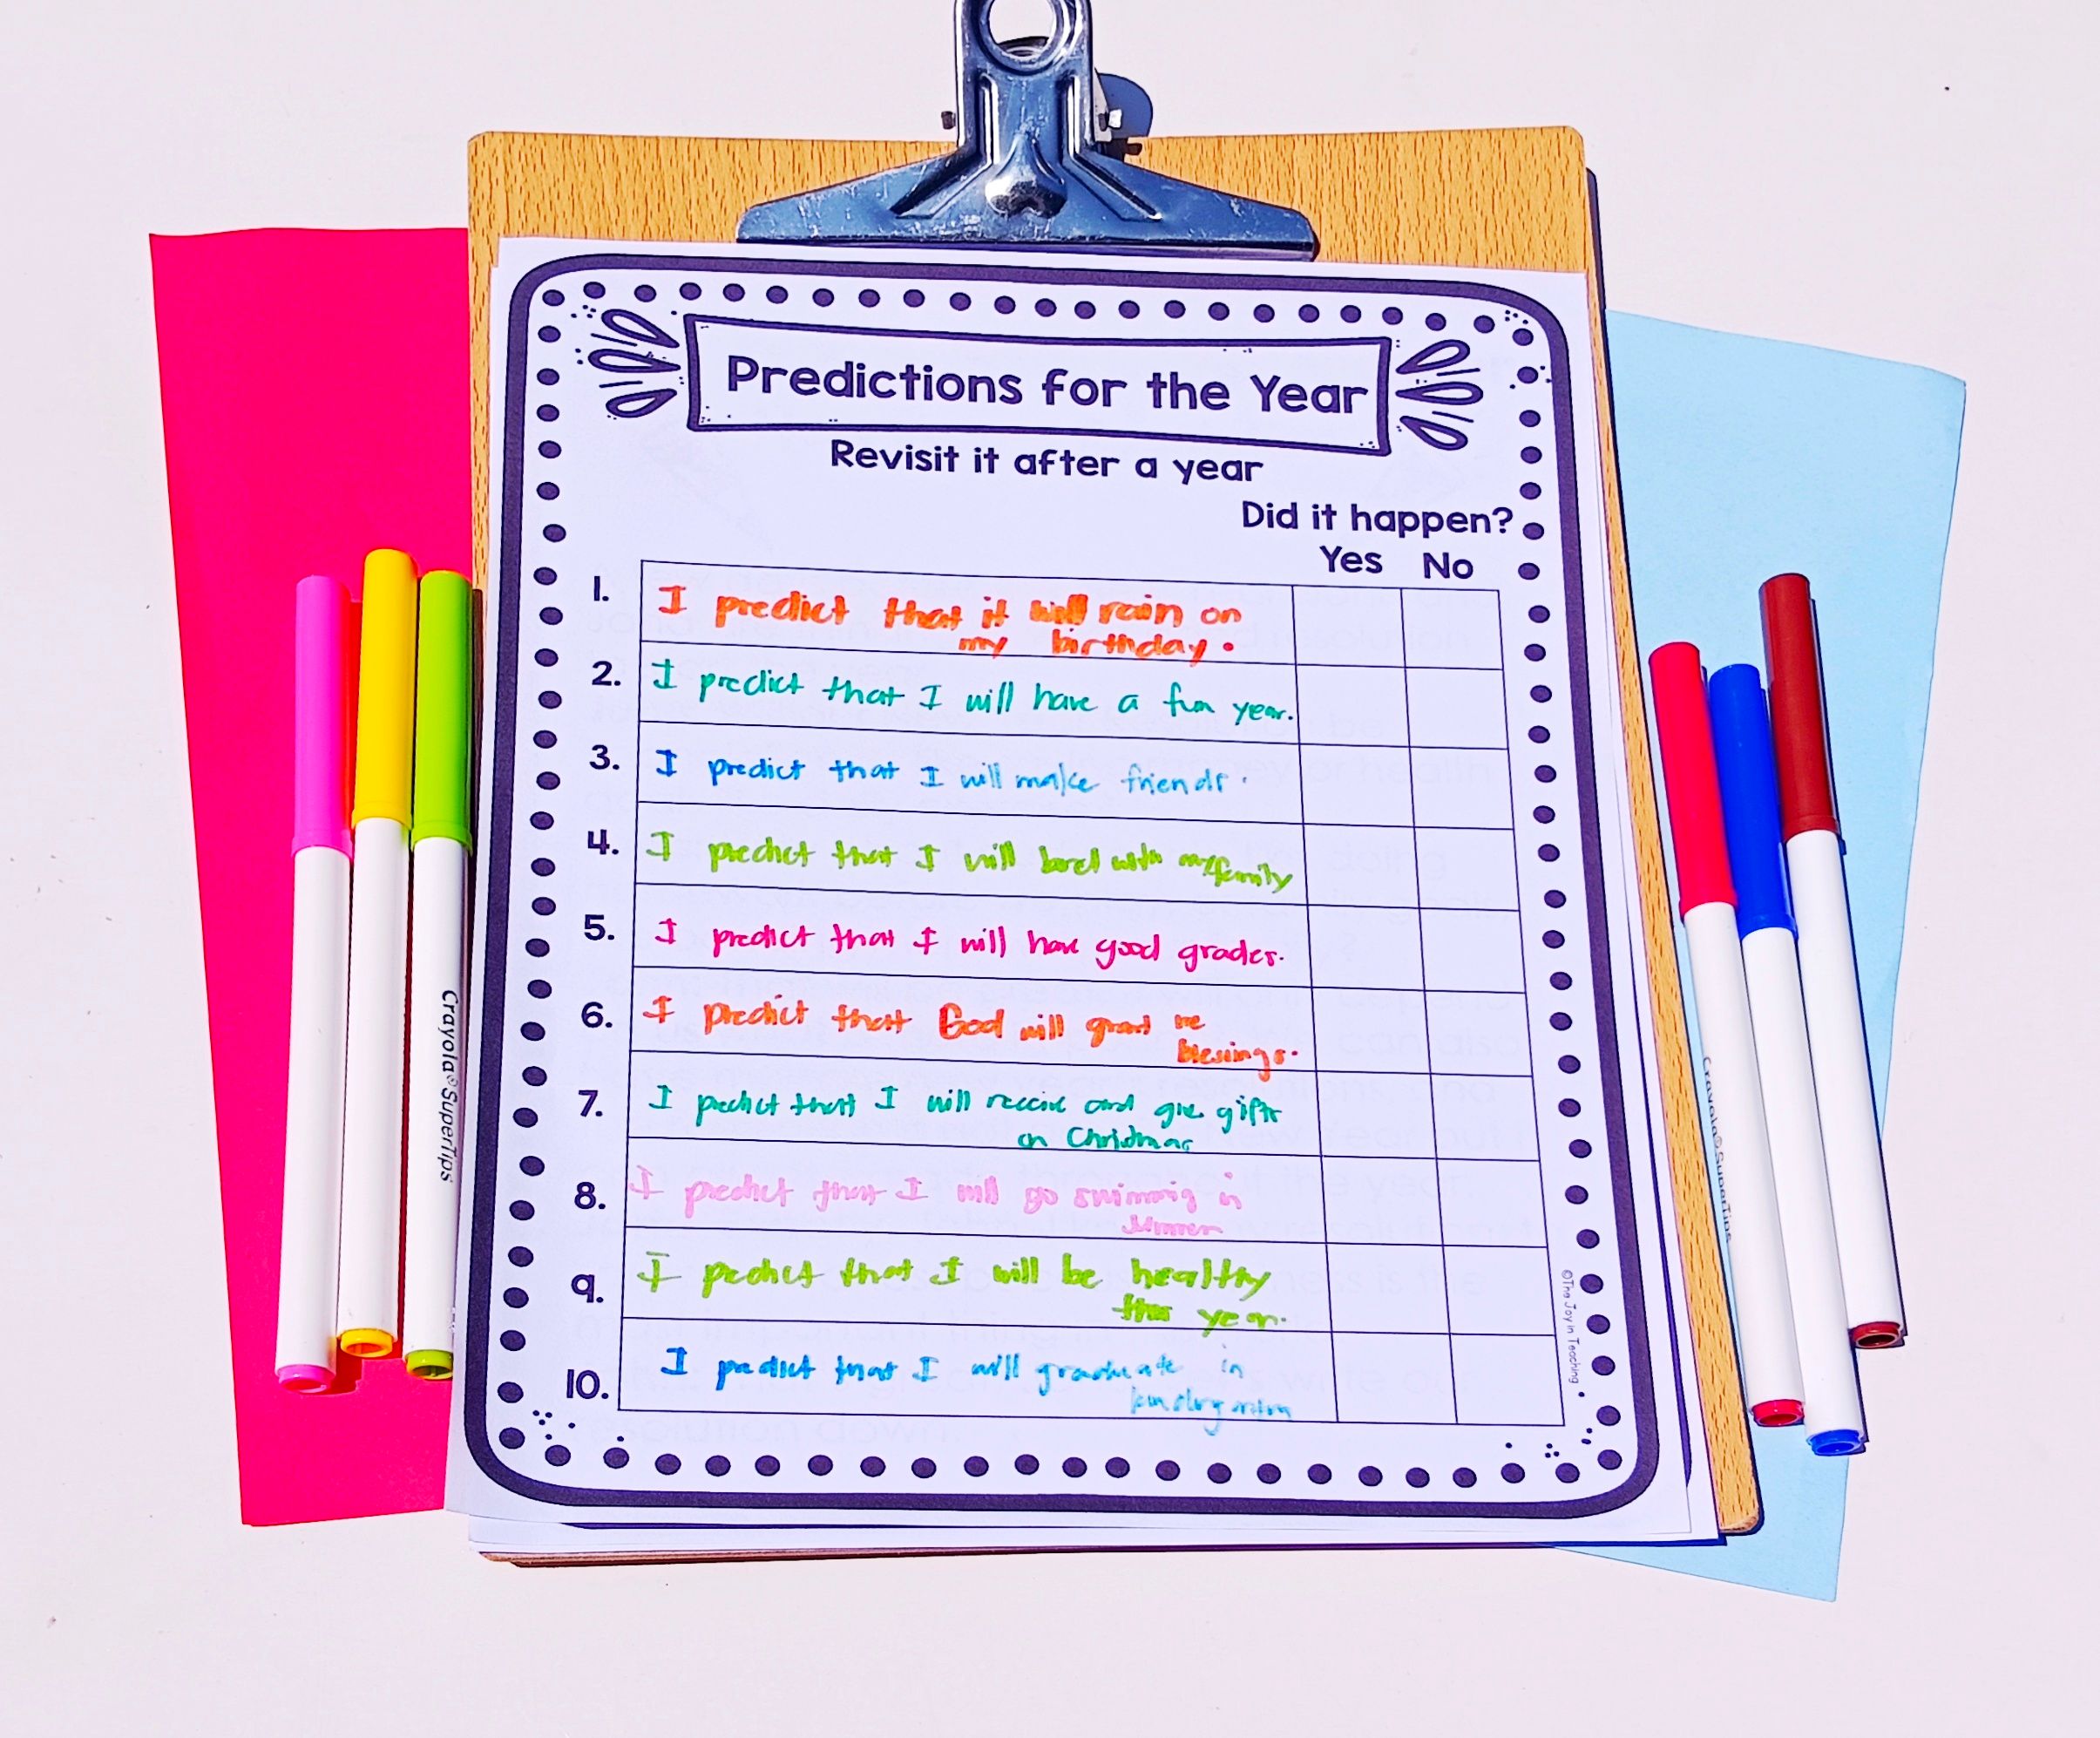 Predictions for the Year
Revisit it after a year
Did it happen?
Yes No
1. I predict that it will rain on
my birthday.
2. I predict that I will have a fun year.
3. I predict that I will make friends.
4. I predict that I will with my family
5. I predict that I will have good grades.
6. I predict that God will grant me
blessings.
7. I predict that I will receive and give gifts
on Christmas
8. I predict that I will go swimming in
summer
9. I predict that I will be healthy
this year.
10. I predict that I will graduate in
Crayola®SuperTips
Crayola®SuperTips
©The Joy in Teaching